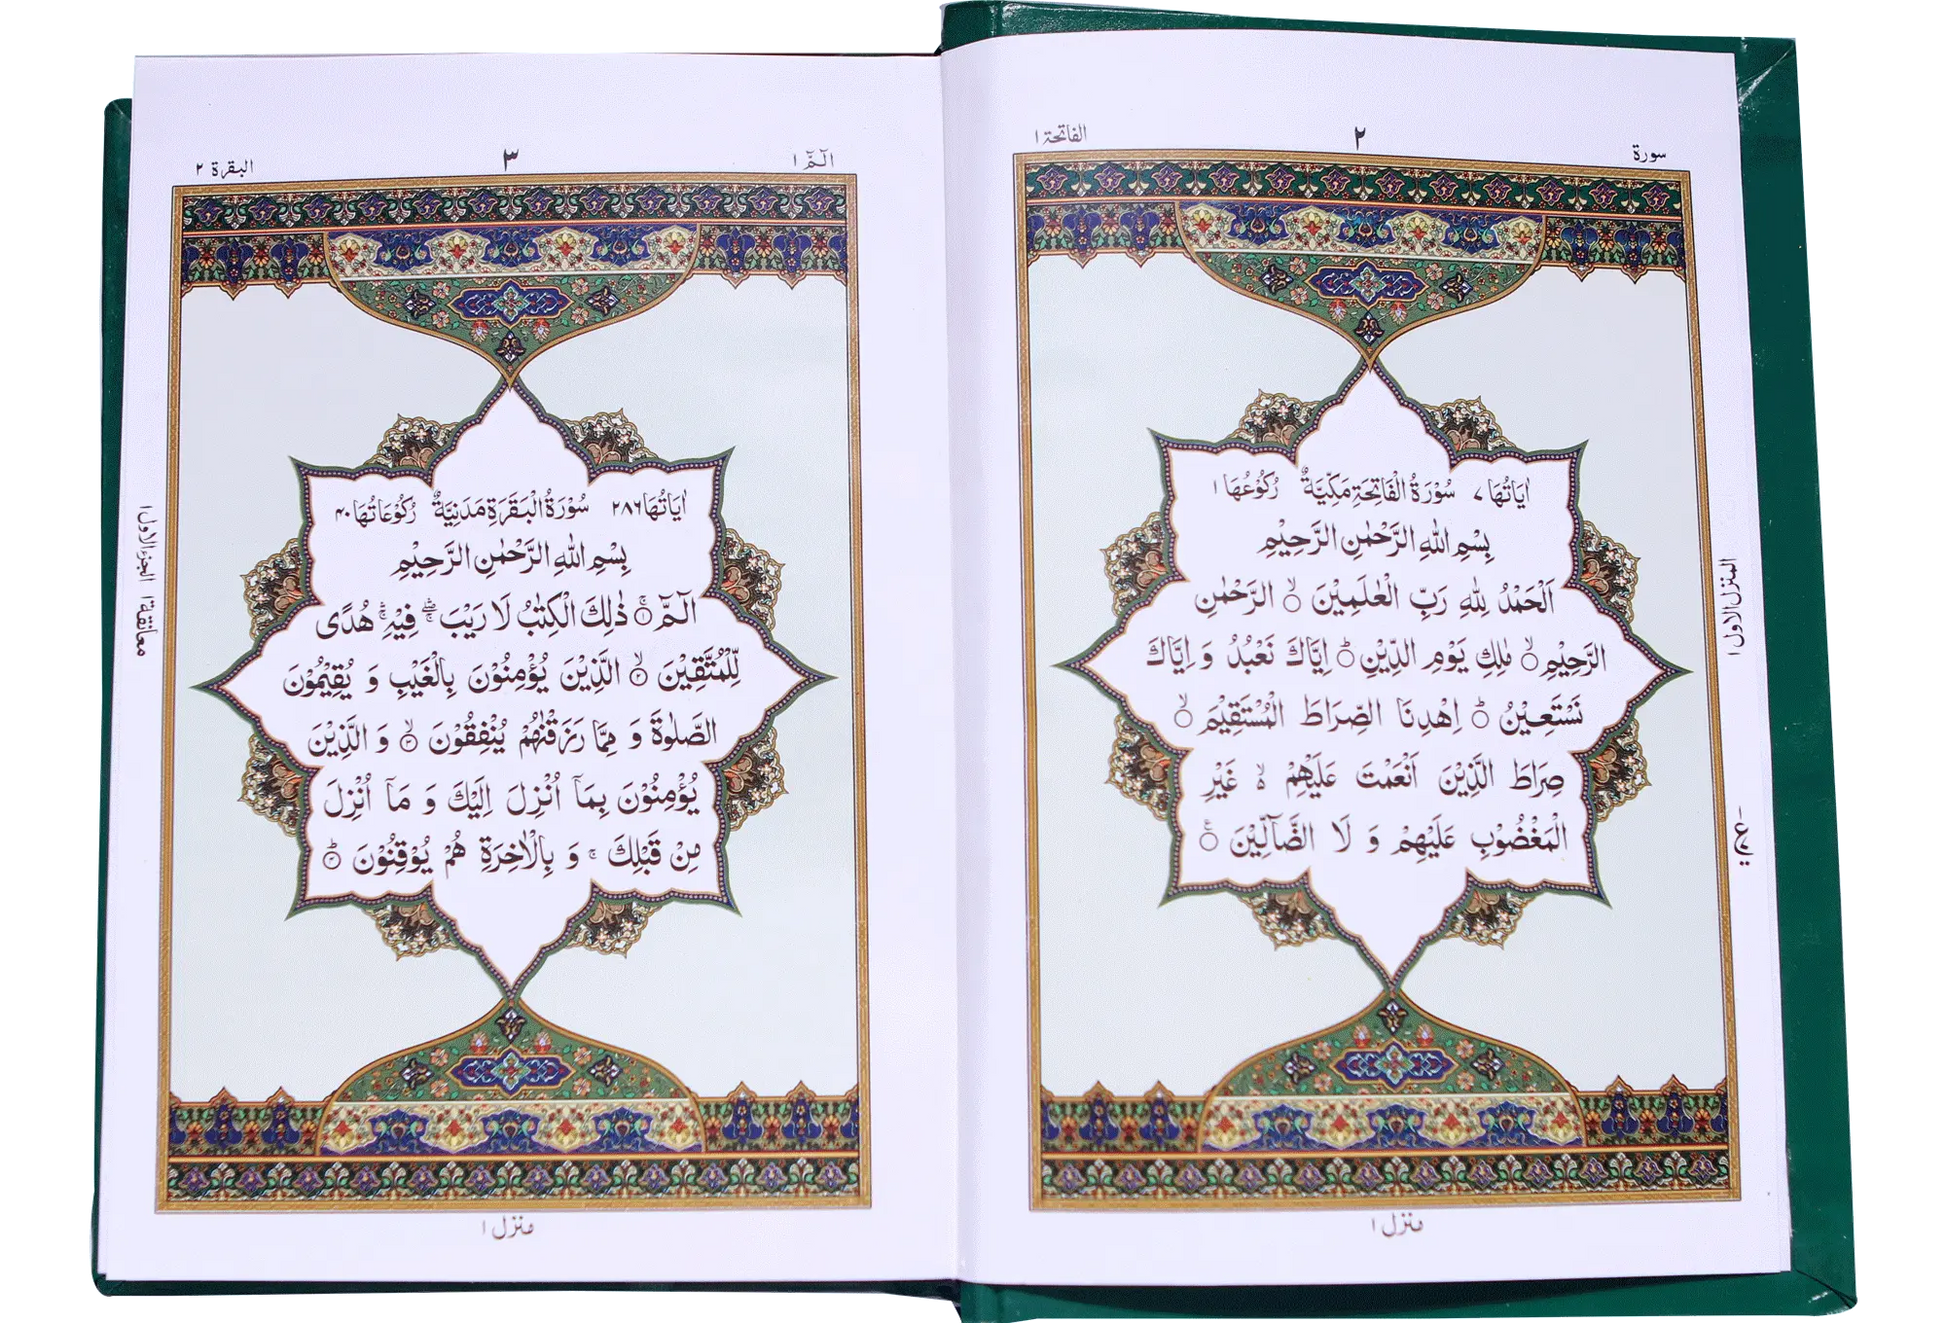 سورة ٢ الفاتحة ١
اٰيَاتُهَا ٧ سُوْرَةُ الْفَاتِحَةِ مَكِّيَّةٌ رُكُوْعُهَا ١
بِسْمِ اللّٰهِ الرَّحْمٰنِ الرَّحِيْمِ
اَلْحَمْدُ لِلّٰهِ رَبِّ الْعٰلَمِيْنَ ۙ الرَّحْمٰنِ
الرَّحِيْمِ ۙ مٰلِكِ يَوْمِ الدِّيْنِ ؕ اِيَّاكَ نَعْبُدُ وَ اِيَّاكَ
نَسْتَعِيْنُ ؕ اِهْدِنَا الصِّرَاطَ الْمُسْتَقِيْمَ ۙ
صِرَاطَ الَّذِيْنَ اَنْعَمْتَ عَلَيْهِمْ ۙ۬ غَيْرِ
الْمَغْضُوْبِ عَلَيْهِمْ وَ لَا الضَّآلِّيْنَ
المنزل الاول ١
منزل ١
الٓمّٓ ١ ٣ البقرة ٢
اٰيَاتُهَا ٢٨٦ سُوْرَةُ الْبَقَرَةِ مَدَنِيَّةٌ رُكُوْعَاتُهَا ٤٠
بِسْمِ اللّٰهِ الرَّحْمٰنِ الرَّحِيْمِ
الٓمّٓ ۚ ١ ذٰلِكَ الْكِتٰبُ لَا رَيْبَ ۛۖ فِيْهِ ۛۚ هُدًى
لِّلْمُتَّقِيْنَ ۙ ٢ الَّذِيْنَ يُؤْمِنُوْنَ بِالْغَيْبِ وَ يُقِيْمُوْنَ
الصَّلٰوةَ وَ مِمَّا رَزَقْنٰهُمْ يُنْفِقُوْنَ ۙ ٣ وَ الَّذِيْنَ
يُؤْمِنُوْنَ بِمَاۤ اُنْزِلَ اِلَيْكَ وَ مَاۤ اُنْزِلَ
مِنْ قَبْلِكَ ۚ وَ بِالْاٰخِرَةِ هُمْ يُوْقِنُوْنَ ؕ ٤
معانقة ١ الجزء الاول ١
منزل ١